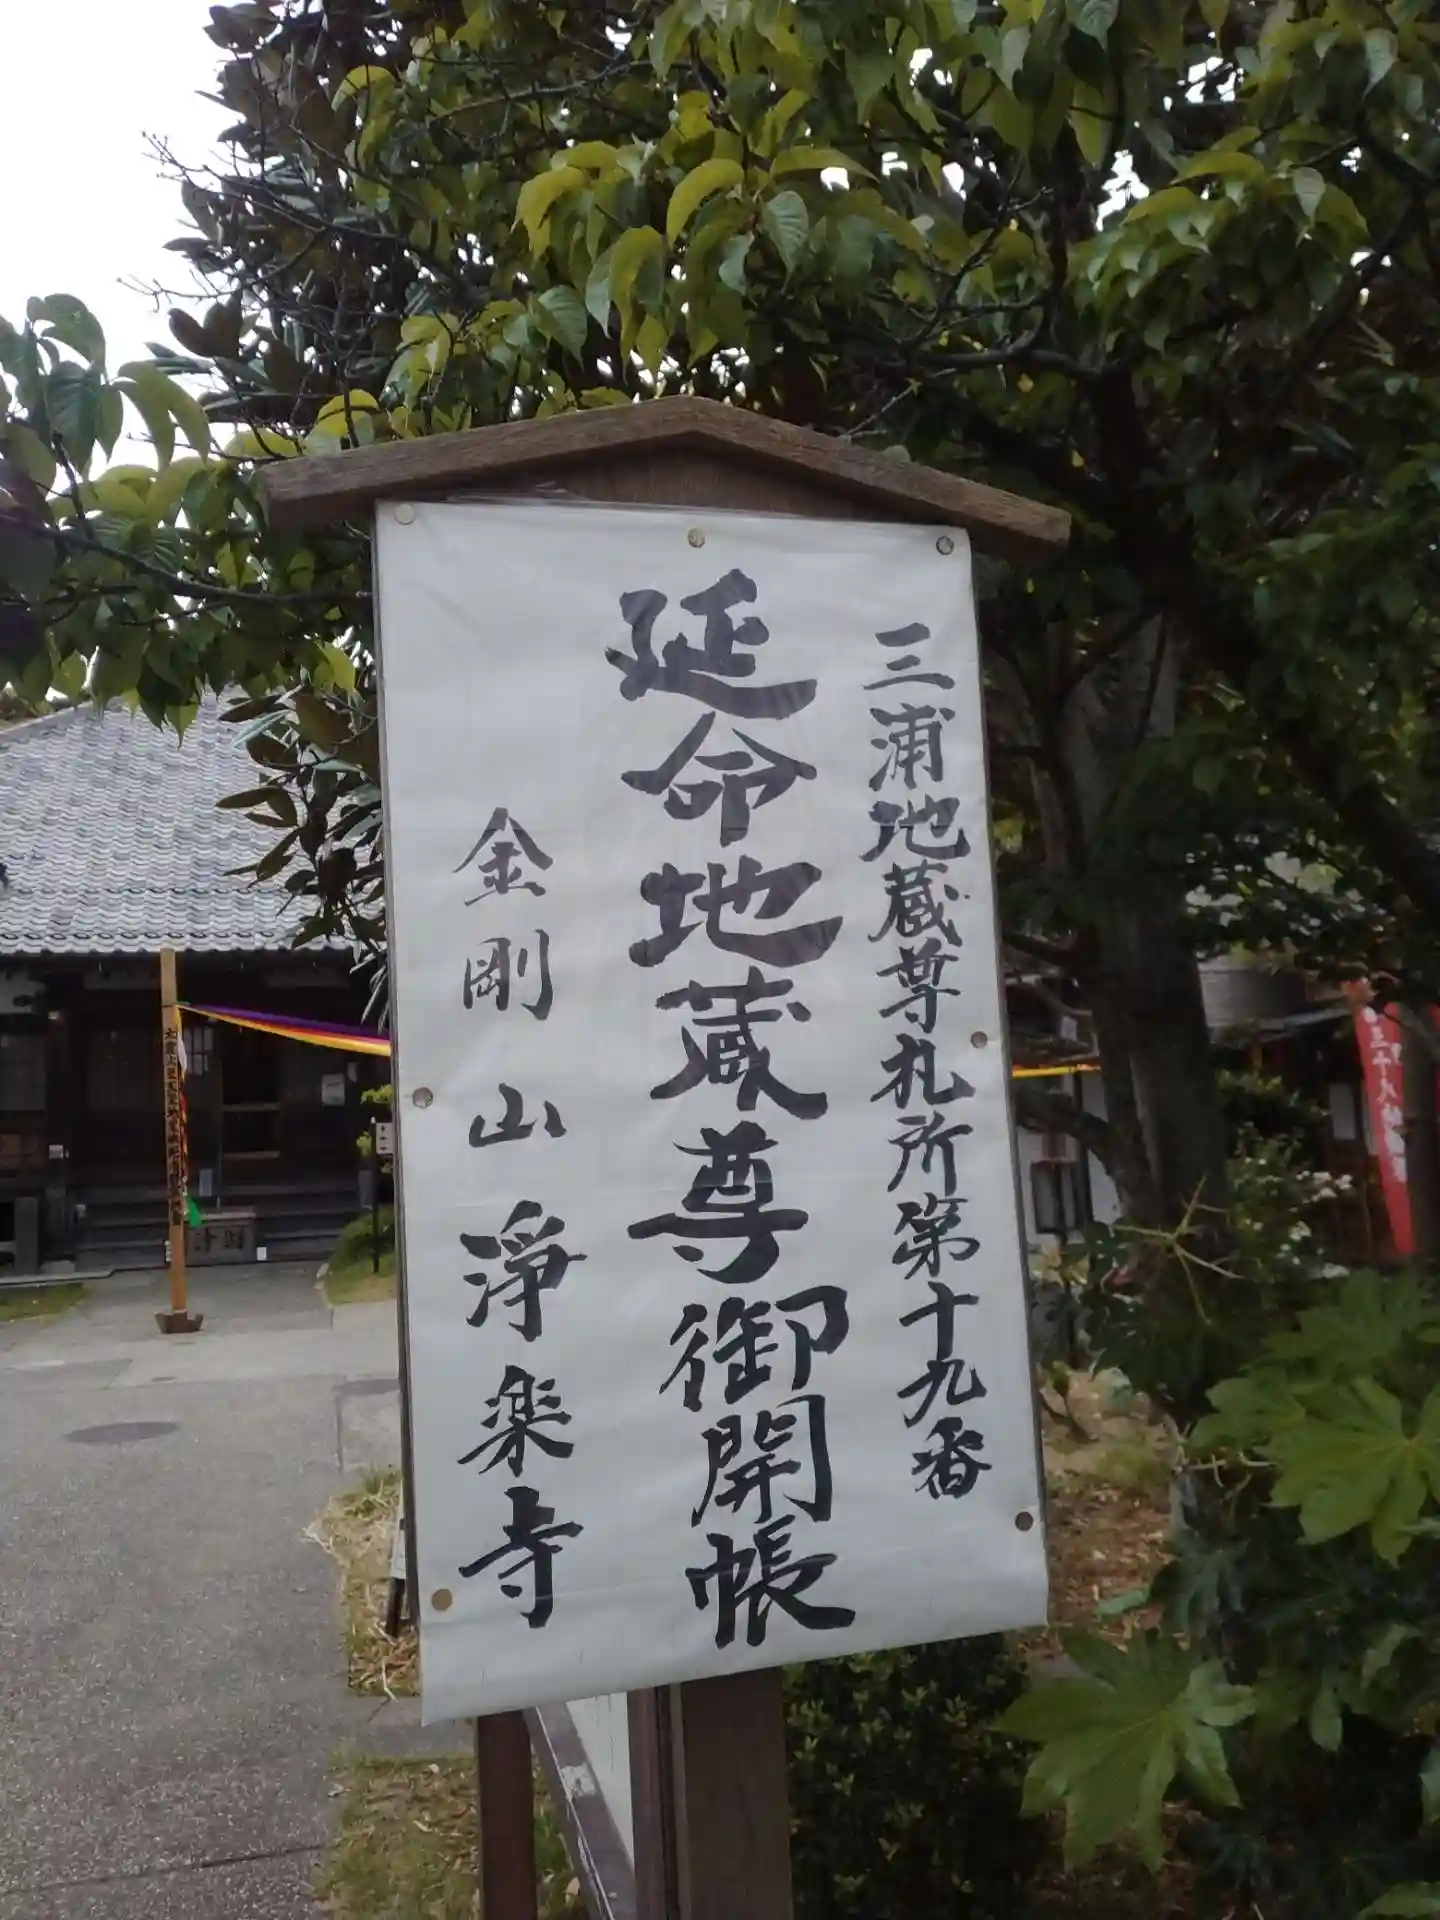 三浦地蔵尊札所第十九番
延命地蔵尊御開帳
金剛山淨楽寺